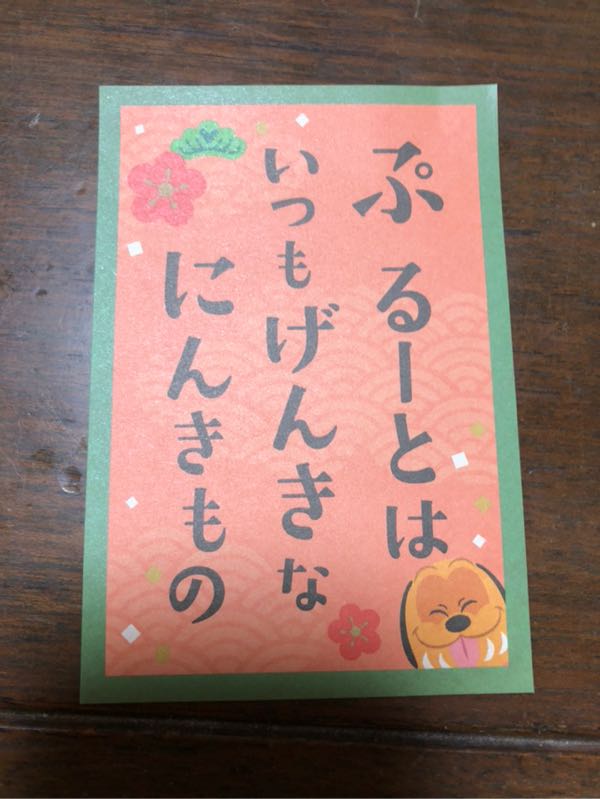 ぷるーとは
いつもげんきな
にんきもの